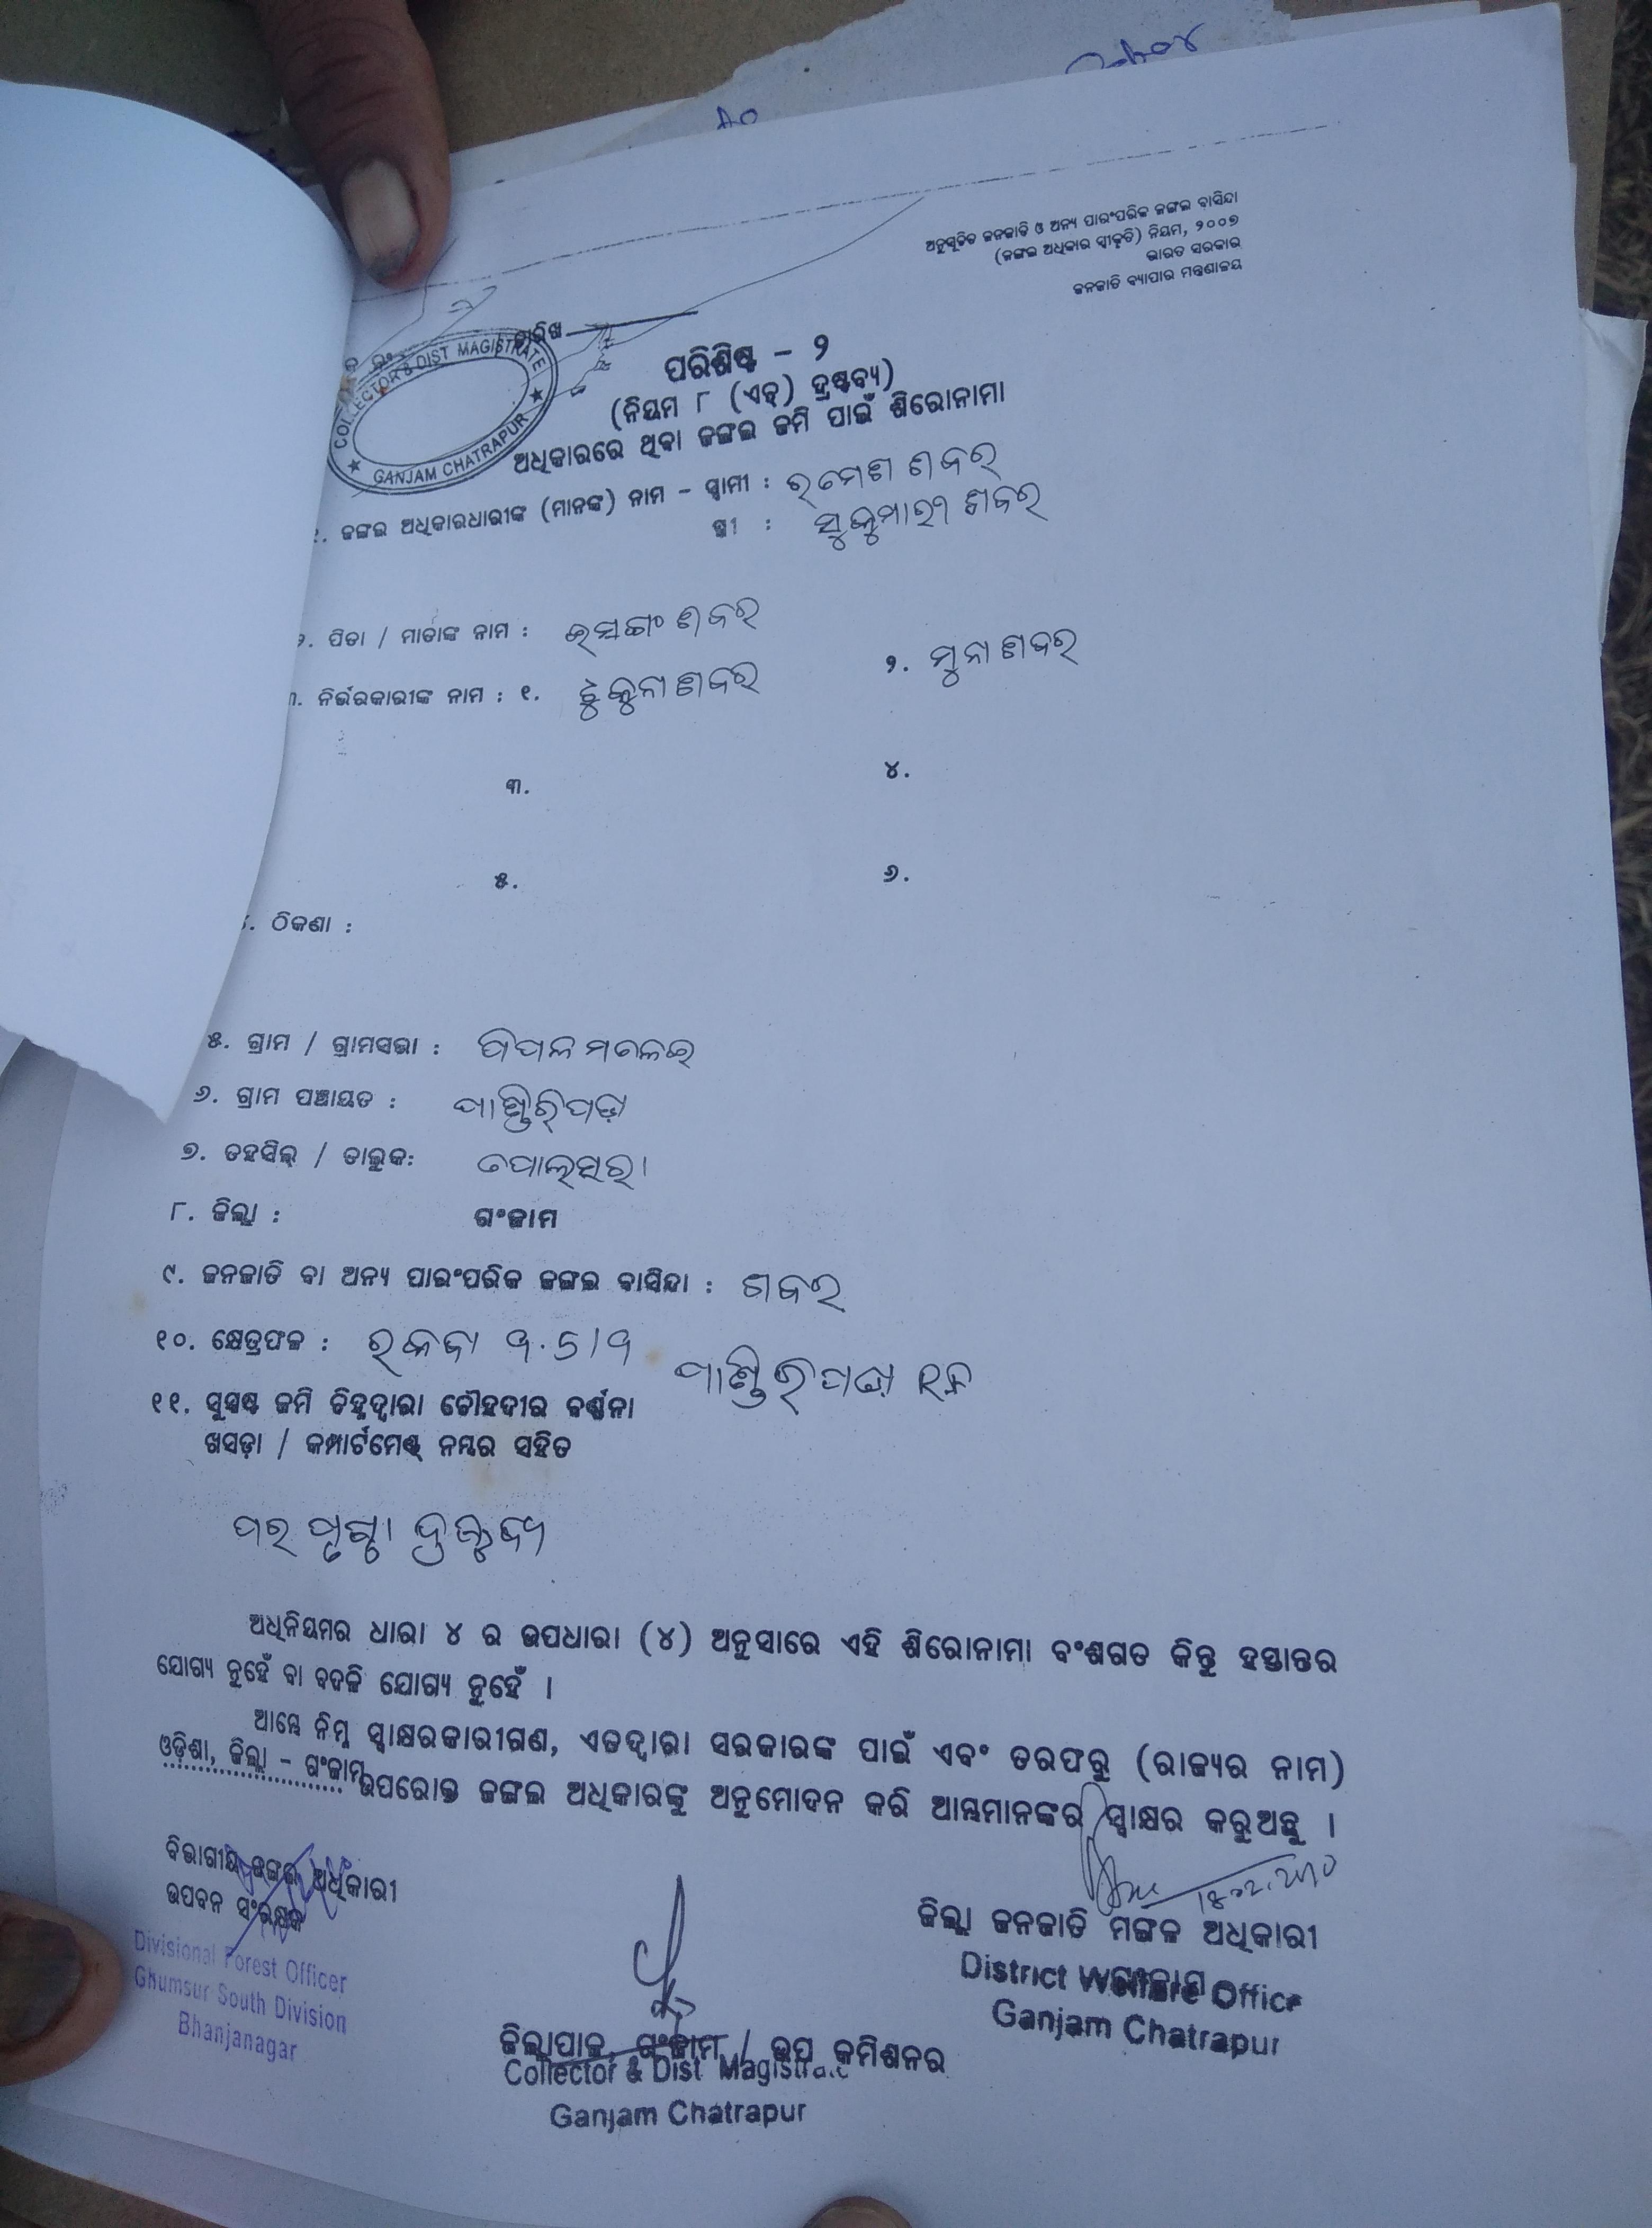 ଅନୁସୂଚିତ ଜନଜାତି ଓ ଅନ୍ୟ ପାରଂପରିକ ଜଙ୍ଗଲ ବାସିନ୍ଦା
(ଜଙ୍ଗଲ ଅଧିକାର ସ୍ୱୀକୃତି) ନିୟମ, ୨୦୦୭
ଭାରତ ସରକାର
ଜନଜାତି ବ୍ୟାପାର ମନ୍ତ୍ରଣାଳୟ
ତାରିଖ
COLLECTOR & DIST MAGISTRATE
GANJAM CHATRAPUR
ପରିଶିଷ୍ଟ - ୨
(ନିୟମ ୮ (ଏଚ୍) ଦ୍ରଷ୍ଟବ୍ୟ)
ଅଧିକାରରେ ଥିବା ଜଙ୍ଗଲ ଜମି ପାଇଁ ଶିରୋନାମା
୧. ଜଙ୍ଗଲ ଅଧିକାରଧାରୀଙ୍କ (ମାନଙ୍କ) ନାମ - ସ୍ୱାମୀ : ରମେଶ ଶବର
ସ୍ତ୍ରୀ : ସୁକୁମାରୀ ଶବର
୨. ପିତା / ମାତାଙ୍କ ନାମ : ଶବର
୩. ନିର୍ଭରକାରୀଙ୍କ ନାମ : ୧. ଟୁକୁନା ଶବର ୨. ମୁନା ଶବର
୩. ୪.
୫. ୬.
୪. ଠିକଣା :
୫. ଗ୍ରାମ / ଗ୍ରାମସଭା : ପିପଳମଳେଇ
୬. ଗ୍ରାମ ପଞ୍ଚାୟତ : ପାଣ୍ଡିରିପଡ଼ା
୭. ତହସିଲ୍ / ତାଲୁକ: ପୋଲସରା
୮. ଜିଲ୍ଲା : ଗଂଜାମ
୯. ଜନଜାତି ବା ଅନ୍ୟ ପାରଂପରିକ ଜଙ୍ଗଲ ବାସିନ୍ଦା : ଶବର
୧୦. କ୍ଷେତ୍ରଫଳ : ରକବା
ପାଣ୍ଡିରିପଡ଼ା RF
୧୧. ସୁସ୍ପଷ୍ଟ ଜମି ଚିହ୍ନଦ୍ୱାରା ଚୌହଦୀର ବର୍ଣ୍ଣନା
ଖସଡ଼ା / କମ୍ପାର୍ଟମେଣ୍ଟ୍ ନମ୍ବର ସହିତ
ପର ପୃଷ୍ଠା ଦ୍ରଷ୍ଟବ୍ୟ
ଅଧିନିୟମର ଧାରା ୪ ର ଉପଧାରା (୪) ଅନୁସାରେ ଏହି ଶିରୋନାମା ବଂଶଗତ କିନ୍ତୁ ହସ୍ତାନ୍ତର
ଯୋଗ୍ୟ ନୁହେଁ ବା ବଦଳି ଯୋଗ୍ୟ ନୁହେଁ ।
ଆମ୍ଭେ ନିମ୍ନ ସ୍ୱାକ୍ଷରକାରୀଗଣ, ଏତଦ୍ୱାରା ସରକାରଙ୍କ ପାଇଁ ଏବଂ ତରଫରୁ (ରାଜ୍ୟର ନାମ)
ଓଡ଼ିଶା, ଜିଲ୍ଲା - ଗଂଜାମ ଉପରୋକ୍ତ ଜଙ୍ଗଲ ଅଧିକାରଙ୍କୁ ଅନୁମୋଦନ କରି ଆମ୍ଭମାନଙ୍କର ସ୍ୱାକ୍ଷର କରୁଅଛୁ ।
ବିଭାଗୀୟ ଜଙ୍ଗଲ ଅଧିକାରୀ
ଉପବନ ସଂରକ୍ଷକ
Divisional Forest Officer
Ghumsur South Division
Bhanjanagar
ଜିଲ୍ଲା ଜନଜାତି ମଙ୍ଗଳ ଅଧିକାରୀ
ଗଂଜାମ
District Welfare Officer
Ganjam Chatrapur
ଜିଲ୍ଲାପାଳ, ଗଂଜାମ / ଉପ କମିଶନର
Collector & Dist Magistrate
Ganjam Chatrapur